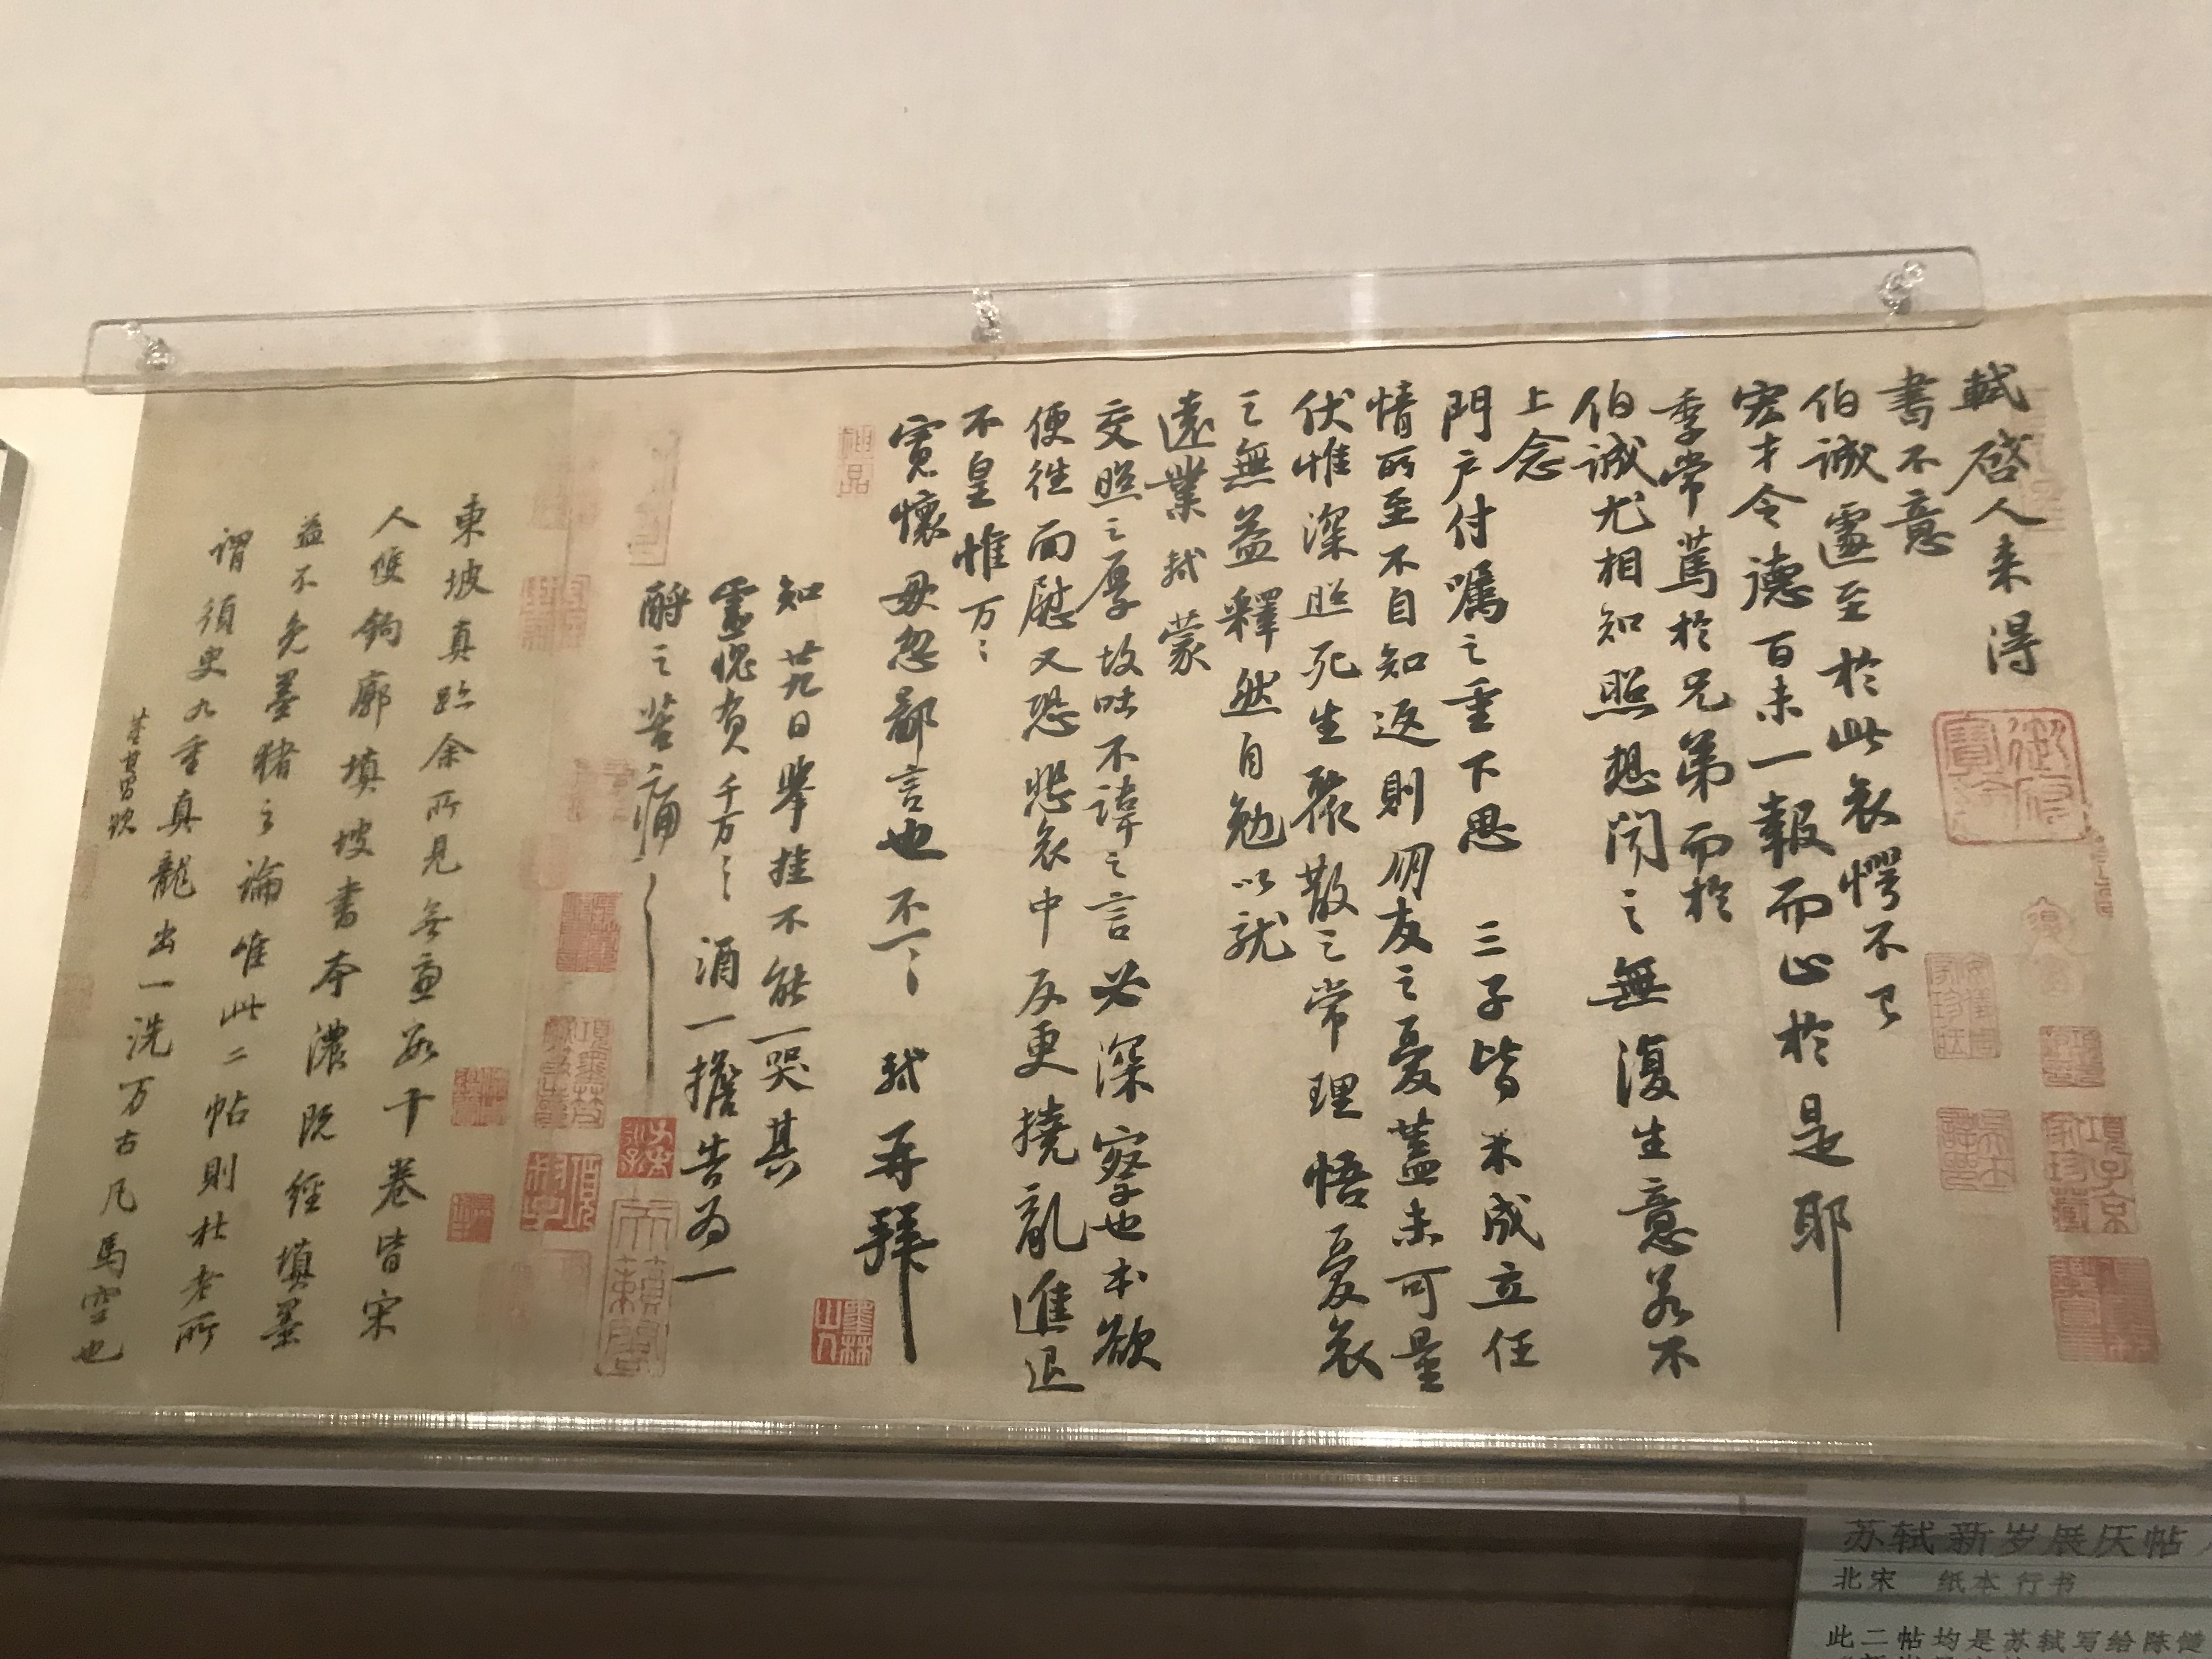 軾啓人来得
書不意
伯誠遽至於此哀愕不已
宏才令德百未一報而止於是耶
季常篤於兄弟而於
伯誠尤相知照想聞之無復生意若不
上念
門戶付囑之重下思三子皆未成立任
情所至不自知返則朋友之憂蓋未可量
伏惟深照死生聚散之常理悟憂哀
之無益釋然自勉以就
遠業軾蒙
交照之厚故吐不諱之言必深察也本欲
便往面慰又恐悲哀中反更撓亂進退
不皇惟万〻
寬懷毋忽鄙言也不一〻軾再拜
知廿九日舉挂不能一哭其
靈愧負千万〻酒一擔告為一
酹之苦痛〻
神品
東坡真跡余所見無慮數十卷皆宋
人雙鉤廓填坡書本濃既經填墨
益不免墨豬之論唯此二帖則杜老所
謂須臾九重真龍出一洗万古凡馬空也
董其昌跋
苏轼新岁展庆帖
北宋 纸本 行书
此二帖均是苏轼写给陈慥